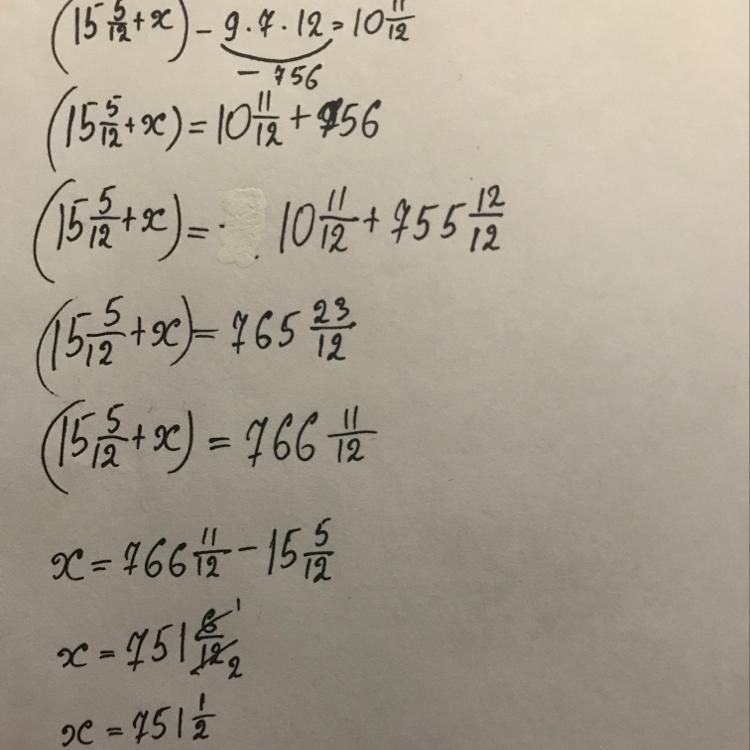 (15 5/12 + x) - 9 · 7 · 12 = 10 11/12
- 756
(15 5/12 + x) = 10 11/12 + 756
(15 5/12 + x) = 10 11/12 + 755 12/12
(15 5/12 + x) = 765 23/12
(15 5/12 + x) = 766 11/12
x = 766 11/12 - 15 5/12
x = 751 6/12 1 2
x = 751 1/2